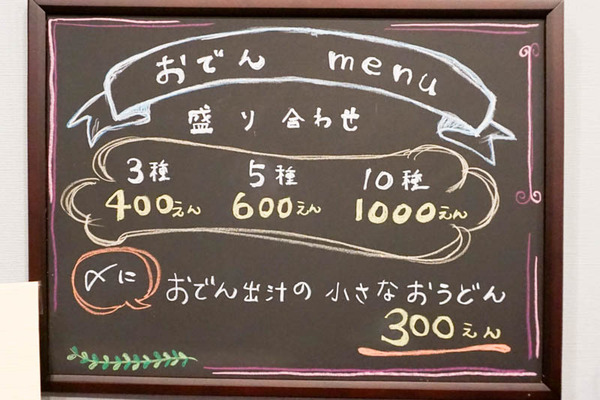 おでん menu
盛り合わせ
3種 5種 10種
400えん 600えん 1000えん
〆に おでん出汁の 小さなおうどん
300えん